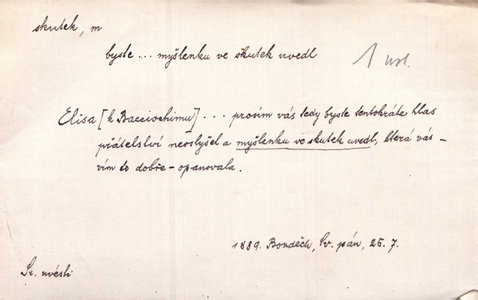 skutek, m
byste ... myšlenku ve skutek uvedl
1 urč.
Elisa [k Bacciochimu] ... prosím vás tedy byste tentokráte hlas
přátelství neoslyšel a myšlenku ve skutek uvedl, která vás –
vím to dobře – opanovala.
1889. Bozděch, Sv. pán, 25. 7.
Sr. uvésti